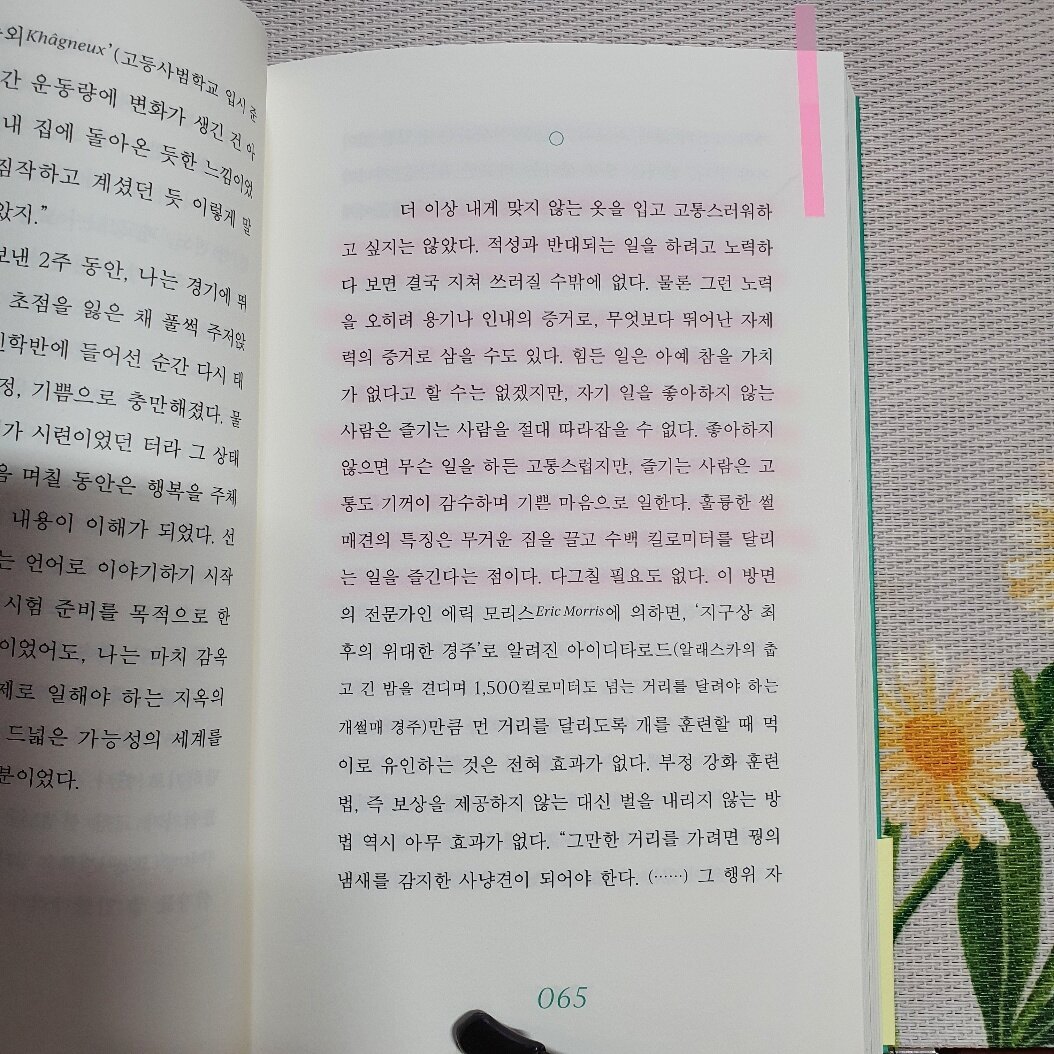 외Khâgneux’(고등사범학교 입시 준
간 운동량에 변화가 생긴 건 아
내 집에 돌아온 듯한 느낌이었
짐작하고 계셨던 듯 이렇게 말
았지.”
보낸 2주 동안, 나는 경기에 뛰
초점을 잃은 채 풀썩 주저앉
인학반에 들어선 순간 다시 태
정, 기쁨으로 충만해졌다. 물
가 시련이었던 터라 그 상태
을 며칠 동안은 행복을 주체
내용이 이해가 되었다. 선
는 언어로 이야기하기 시작
시험 준비를 목적으로 한
이었어도, 나는 마치 감옥
제로 일해야 하는 지옥의
드넓은 가능성의 세계를
분이었다.
더 이상 내게 맞지 않는 옷을 입고 고통스러워하
고 싶지는 않았다. 적성과 반대되는 일을 하려고 노력하
다 보면 결국 지쳐 쓰러질 수밖에 없다. 물론 그런 노력
을 오히려 용기나 인내의 증거로, 무엇보다 뛰어난 자제
력의 증거로 삼을 수도 있다. 힘든 일은 아예 참을 가치
가 없다고 할 수는 없겠지만, 자기 일을 좋아하지 않는
사람은 즐기는 사람을 절대 따라잡을 수 없다. 좋아하지
않으면 무슨 일을 하든 고통스럽지만, 즐기는 사람은 고
통도 기꺼이 감수하며 기쁜 마음으로 일한다. 훌륭한 썰
매견의 특징은 무거운 짐을 끌고 수백 킬로미터를 달리
는 일을 즐긴다는 점이다. 다그칠 필요도 없다. 이 방면
의 전문가인 에릭 모리스Eric Morris에 의하면, ‘지구상 최
후의 위대한 경주’로 알려진 아이디타로드(알래스카의 춥
고 긴 밤을 견디며 1,500킬로미터도 넘는 거리를 달려야 하는
개썰매 경주)만큼 먼 거리를 달리도록 개를 훈련할 때 먹
이로 유인하는 것은 전혀 효과가 없다. 부정 강화 훈련
법, 즉 보상을 제공하지 않는 대신 벌을 내리지 않는 방
법 역시 아무 효과가 없다. “그만한 거리를 가려면 꿩의
냄새를 감지한 사냥견이 되어야 한다. (……) 그 행위 자
065